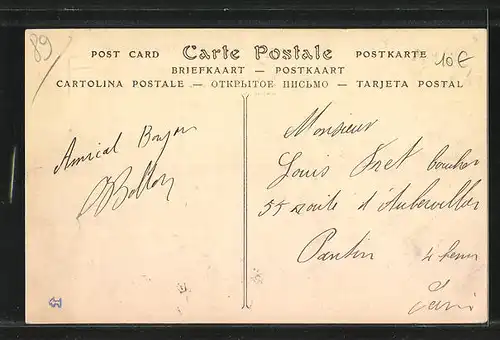 89
POST CARD Carte Postale POSTKARTE
10€
BRIEFKAART — POSTKAART
CARTOLINA POSTALE — ОТКРЫТОЕ ПИСЬМО — TARJETA POSTAL
Amical Bonjour
Monsieur
Louis Fret boucher
55 route d'Aubervillier
Pantin 4 chemin